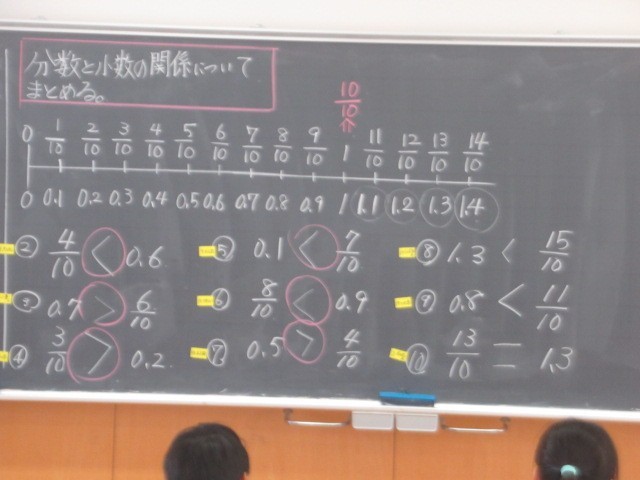 分数と小数の関係について
まとめる。
10/10
↑
0 1/10 2/10 3/10 4/10 5/10 6/10 7/10 8/10 9/10 1 11/10 12/10 13/10 14/10
0 0.1 0.2 0.3 0.4 0.5 0.6 0.7 0.8 0.9 1 1.1 1.2 1.3 1.4
② 4/10 < 0.6
③ 0.7 > 6/10
④ 3/10 > 0.2
⑤ 0.1 < 7/10
⑥ 8/10 < 0.9
⑦ 0.5 > 4/10
⑧ 1.3 < 15/10
⑨ 0.8 < 11/10
⑩ 13/10 = 1.3